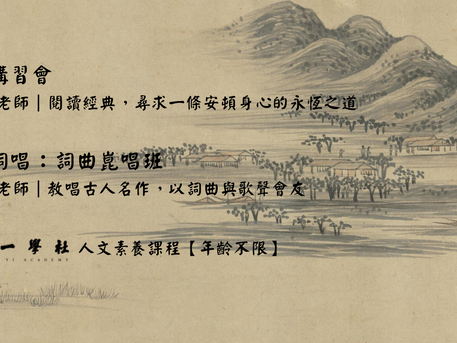 講習會
老師｜閱讀經典，尋求一條安頓身心的永恆之道
詞唱：詞曲崑唱班
老師｜教唱古人名作，以詞曲與歌聲會友
一學社 人文素養課程【年齡不限】
YI ACADEMY